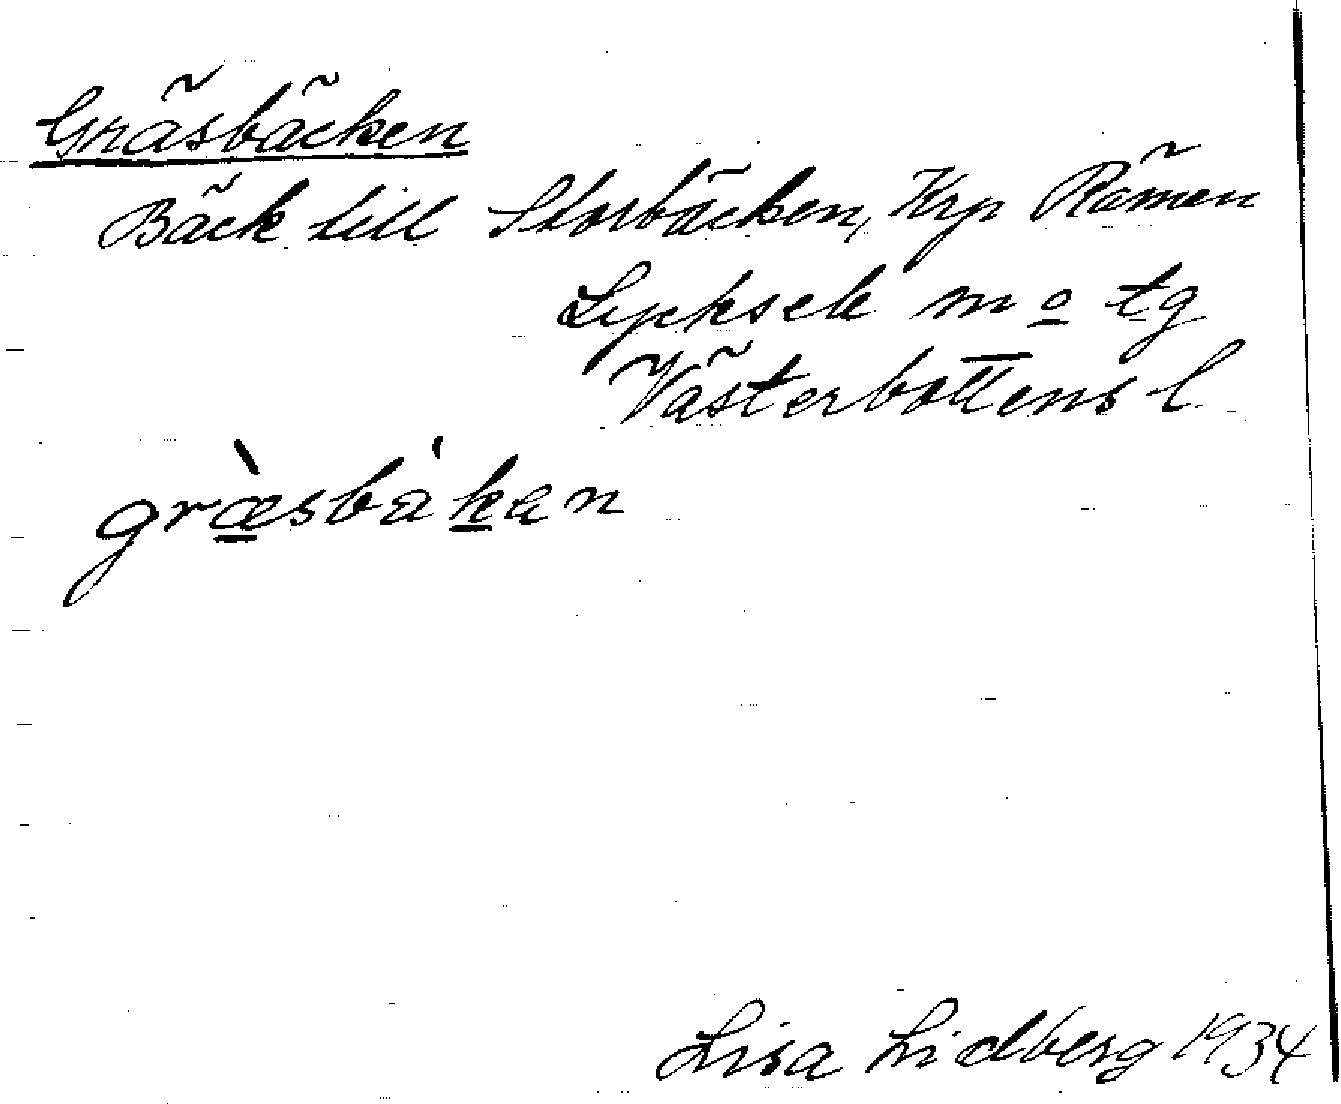 Gräsbäcken
Bäck till Storbäcken, Krp Römen
Lycksele m o tg
Västerbottens l
græ̀sbàkan
Lisa Lidberg 1934